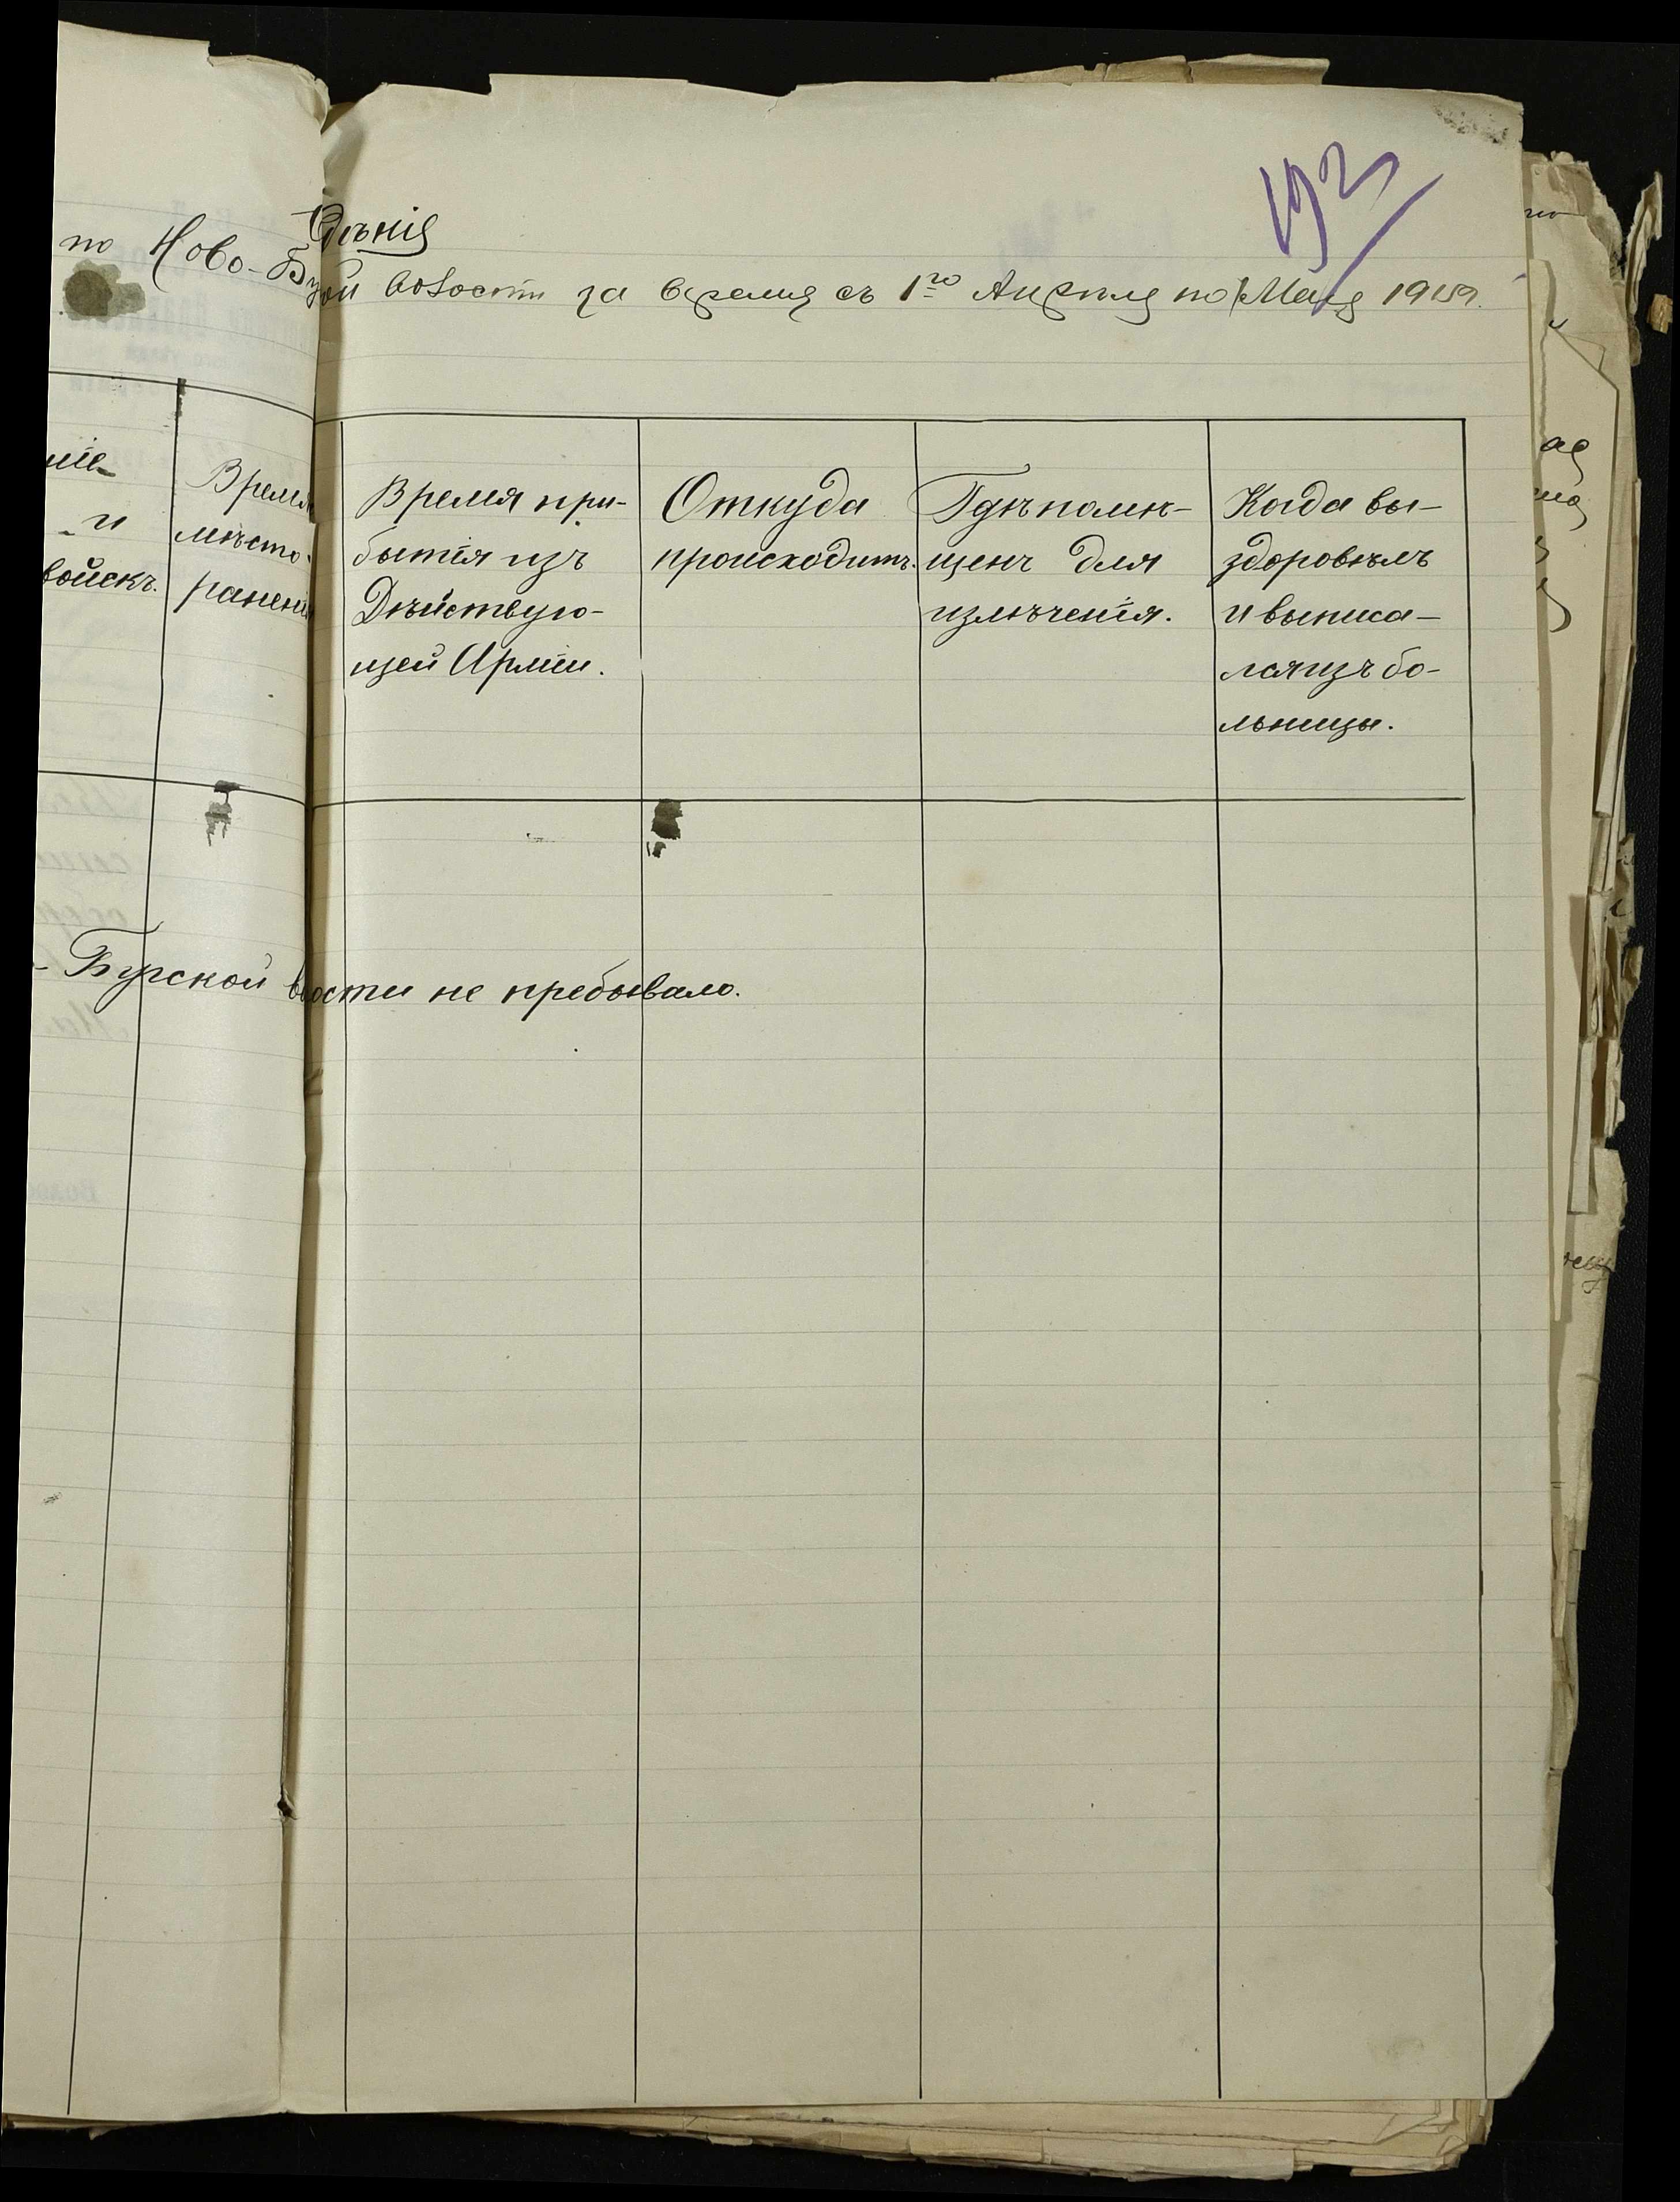 192
дѣнія
по Ново-Бу
ой волости за время съ 1го Апрѣля по 1 Мая 1919.
ніе
и
войскъ.
Время
мѣсто
раненія
Время при-
бытія изъ
Дѣйствую-
щей Арміи.
Откуда
происходитъ.
Гдѣ помѣ-
щенъ для
излѣченія.
Когда вы-
здоровѣлъ
и выписа-
лся изъ бо-
льницы.
- Бугской в
ости не пребывало.